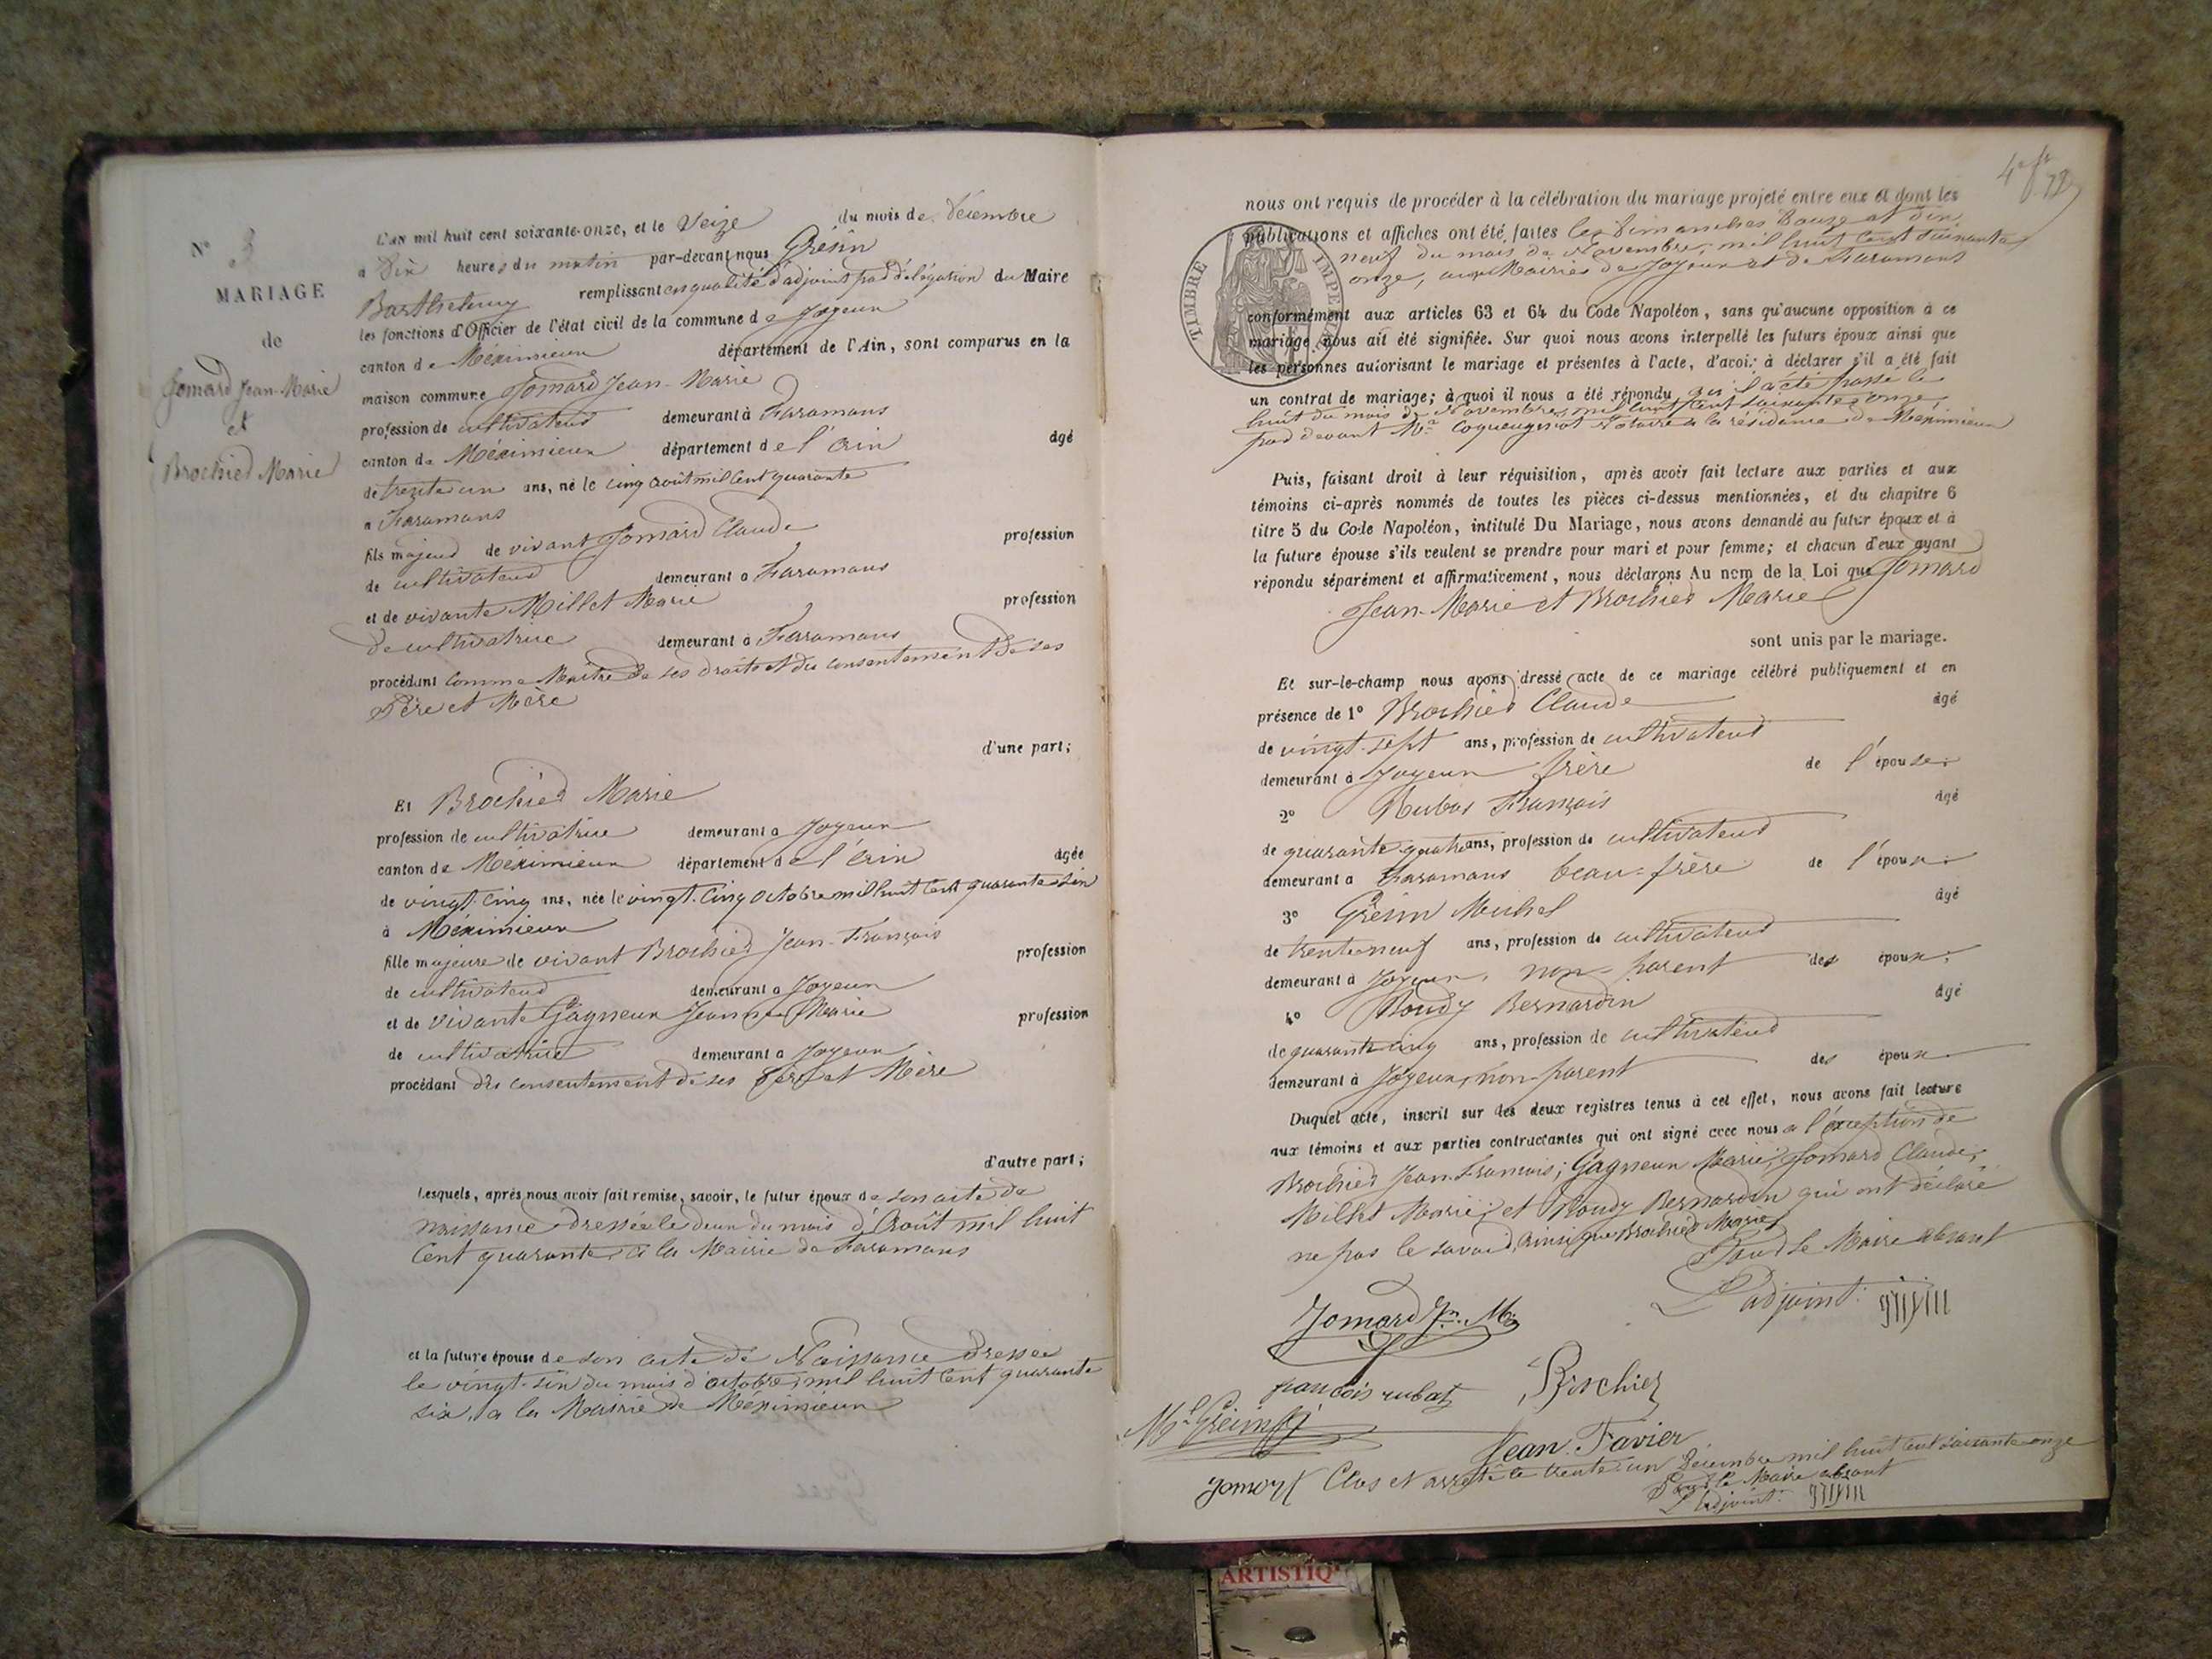 N° 3
MARIAGE
de
Jomard Jean-Marie
et
Brochier Marie
L'an mil huit cent soixante-onze, et le Seize du mois de Décembre
à Dix heures du matin par-devant nous Grésin
Barthelemy remplissant en qualité d'adjoint par délégation du Maire
les fonctions d'Officier de l'état civil de la commune de Joyeux
canton de Méximieux département de l'Ain, sont comparus en la
maison commune Jomard Jean-Marie
profession de cultivateur demeurant à Faramans
canton de Méximieux département de l'Ain âgé
de trente un ans, né le cinq Août mil cent quarante
a Faramans
fils majeur de vivant Jomard Claude profession
de cultivateur demeurant a Faramans
et de vivante Millet Marie profession
de cultivatrice demeurant à Faramans
procédant comme Maître de ses droits et du consentement de ses
Père et Mère
d'une part;
Et Brochier Marie
profession de cultivatrice demeurant a Joyeux
canton de Méximieux département de l'Ain âgée
de vingt-cinq ans, née le vingt-cinq octobre mil huit cent quarante six
à Méximieux
fille majeure de vivant Brochier Jean-François profession
de cultivateur demeurant a Joyeux
et de vivante Gagneux Jeanne Marie profession
de cultivatrice demeurant a Joyeux
procédant du consentement de ses Père et Mère
d'autre part;
Lesquels, après nous avoir fait remise, savoir, le futur époux de son acte de
naissance dressée le deux du mois d'Août mil huit
cent quarante, à la Mairie de Faramans
et la future épouse de son acte de Naissance dressée
le vingt-six du mois d'octobre, mil huit cent quarante
six, a la Mairie de Méximieux
nous ont requis de procéder à la célébration du mariage projeté entre eux et dont les
publications et affiches ont été faites les Dimanches Douze et dix
neuf du mois de Novembre, mil huit cent soixante
onze, aux Mairies de Joyeux et de Faramans
TIMBRE IMPERIAL
conformément aux articles 63 et 64 du Code Napoléon, sans qu'aucune opposition à ce
mariage nous ait été signifiée. Sur quoi nous avons interpellé les futurs époux ainsi que
les personnes autorisant le mariage et présentes à l'acte, d'avoir à déclarer s'il a été fait
un contrat de mariage; à quoi il nous a été répondu qu'il a été passé le
huit du mois de Novembre, mil huit cent soixante onze,
par devant Me Coqueugniot Notaire a la résidence de Méximieux
Puis, faisant droit à leur réquisition, après avoir fait lecture aux parties et aux
témoins ci-après nommés de toutes les pièces ci-dessus mentionnées, et du chapitre 6
titre 5 du Code Napoléon, intitulé Du Mariage, nous avons demandé au futur époux et à
la future épouse s'ils veulent se prendre pour mari et pour femme; et chacun d'eux ayant
répondu séparément et affirmativement, nous déclarons Au nom de la Loi que Jomard
Jean-Marie et Brochier Marie
sont unis par le mariage.
Et sur-le-champ nous avons dressé acte de ce mariage célébré publiquement et en
présence de 1° Brochier Claude âgé
de vingt-sept ans, profession de cultivateur
demeurant à Joyeux frère de l'épouse;
2° Rubat François âgé
de quarante-quatre ans, profession de cultivateur
demeurant a Faramans beau-frère de l'époux;
3° Grésin Michel âgé
de trente-neuf ans, profession de cultivateur
demeurant à Joyeux, non-parent des époux;
4° Roudy Bernardin âgé
de quarante cinq ans, profession de cultivateur
demeurant à Joyeux, non-parent des époux
Duquel acte, inscrit sur les deux registres tenus à cet effet, nous avons fait lecture
aux témoins et aux parties contractantes qui ont signé avec nous a l'exception de
Brochier Jean-Francois; Gagneux Marie, Jomard Claude,
Millet Marie; et Roudy Bernardin qui ont déclaré
ne pas le savoir, ainsi que Brochier Marie
Pour le Maire absent
L'adjoint:
Jomard Jn. Mie
francois rubat
Brochier
Mel Grésin
Jean Favier
Jomard
Clos et arrêté le trente-un Décembre mil huit cent soixante onze
Pour le Maire absent
L'adjoint:
ARTISTIQ